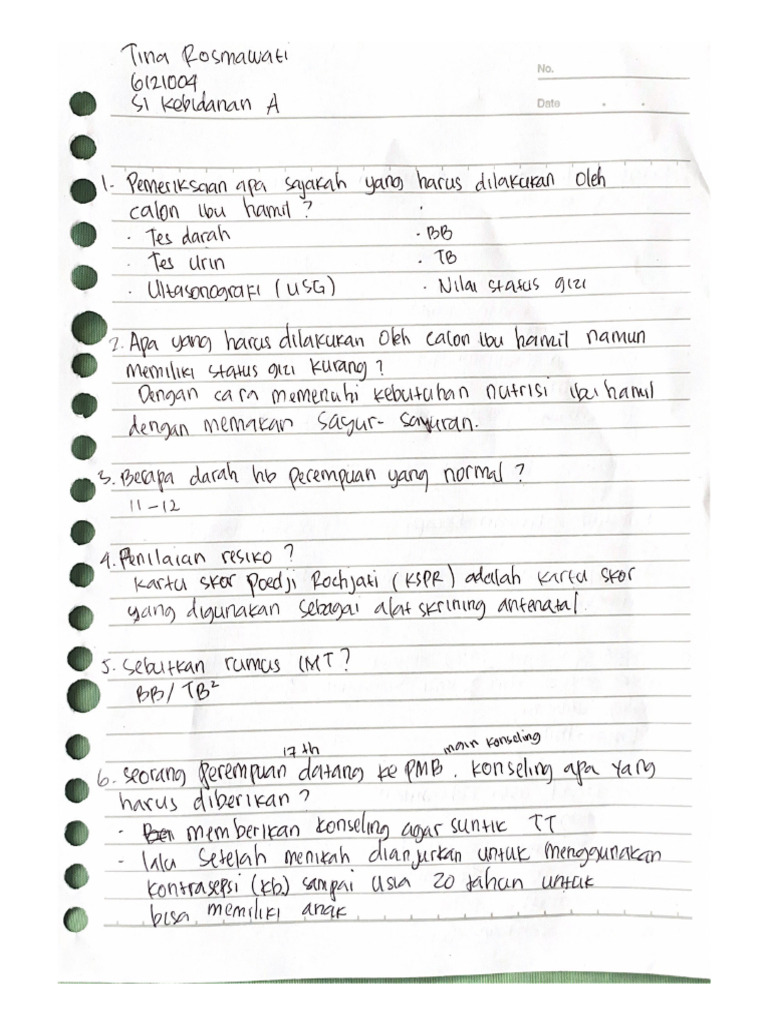 Tina Rosmawati
6121004
S1 Kebidanan A
No.
Date
1. Pemeriksaan apa sajakah yang harus dilakukan oleh
calon ibu hamil ?
· Tes darah
· Tes urin
· Ultasonografi (USG)
· BB
· TB
· Nilai status gizi
2. Apa yang harus dilakukan oleh calon ibu hamil namun
memiliki status gizi kurang ?
Dengan cara memenuhi kebutuhan nutrisi ibu hamil
dengan memakan sayur-sayuran.
3. Berapa darah hb perempuan yang normal ?
11-12
4. Penilaian resiko ?
kartu skor Poedji Rochjati (KSPR) adalah kartu skor
yang digunakan sebagai alat skrining antenatal.
5. Sebutkan rumus IMT ?
BB/TB²
17 th
main konseling
6. Seorang perempuan datang ke PMB. konseling apa yang
harus diberikan ?
- memberikan konseling agar suntik TT
- lalu setelah menikah dianjurkan untuk menggunakan
kontrasepsi (kb) sampai usia 20 tahun untuk
bisa memiliki anak